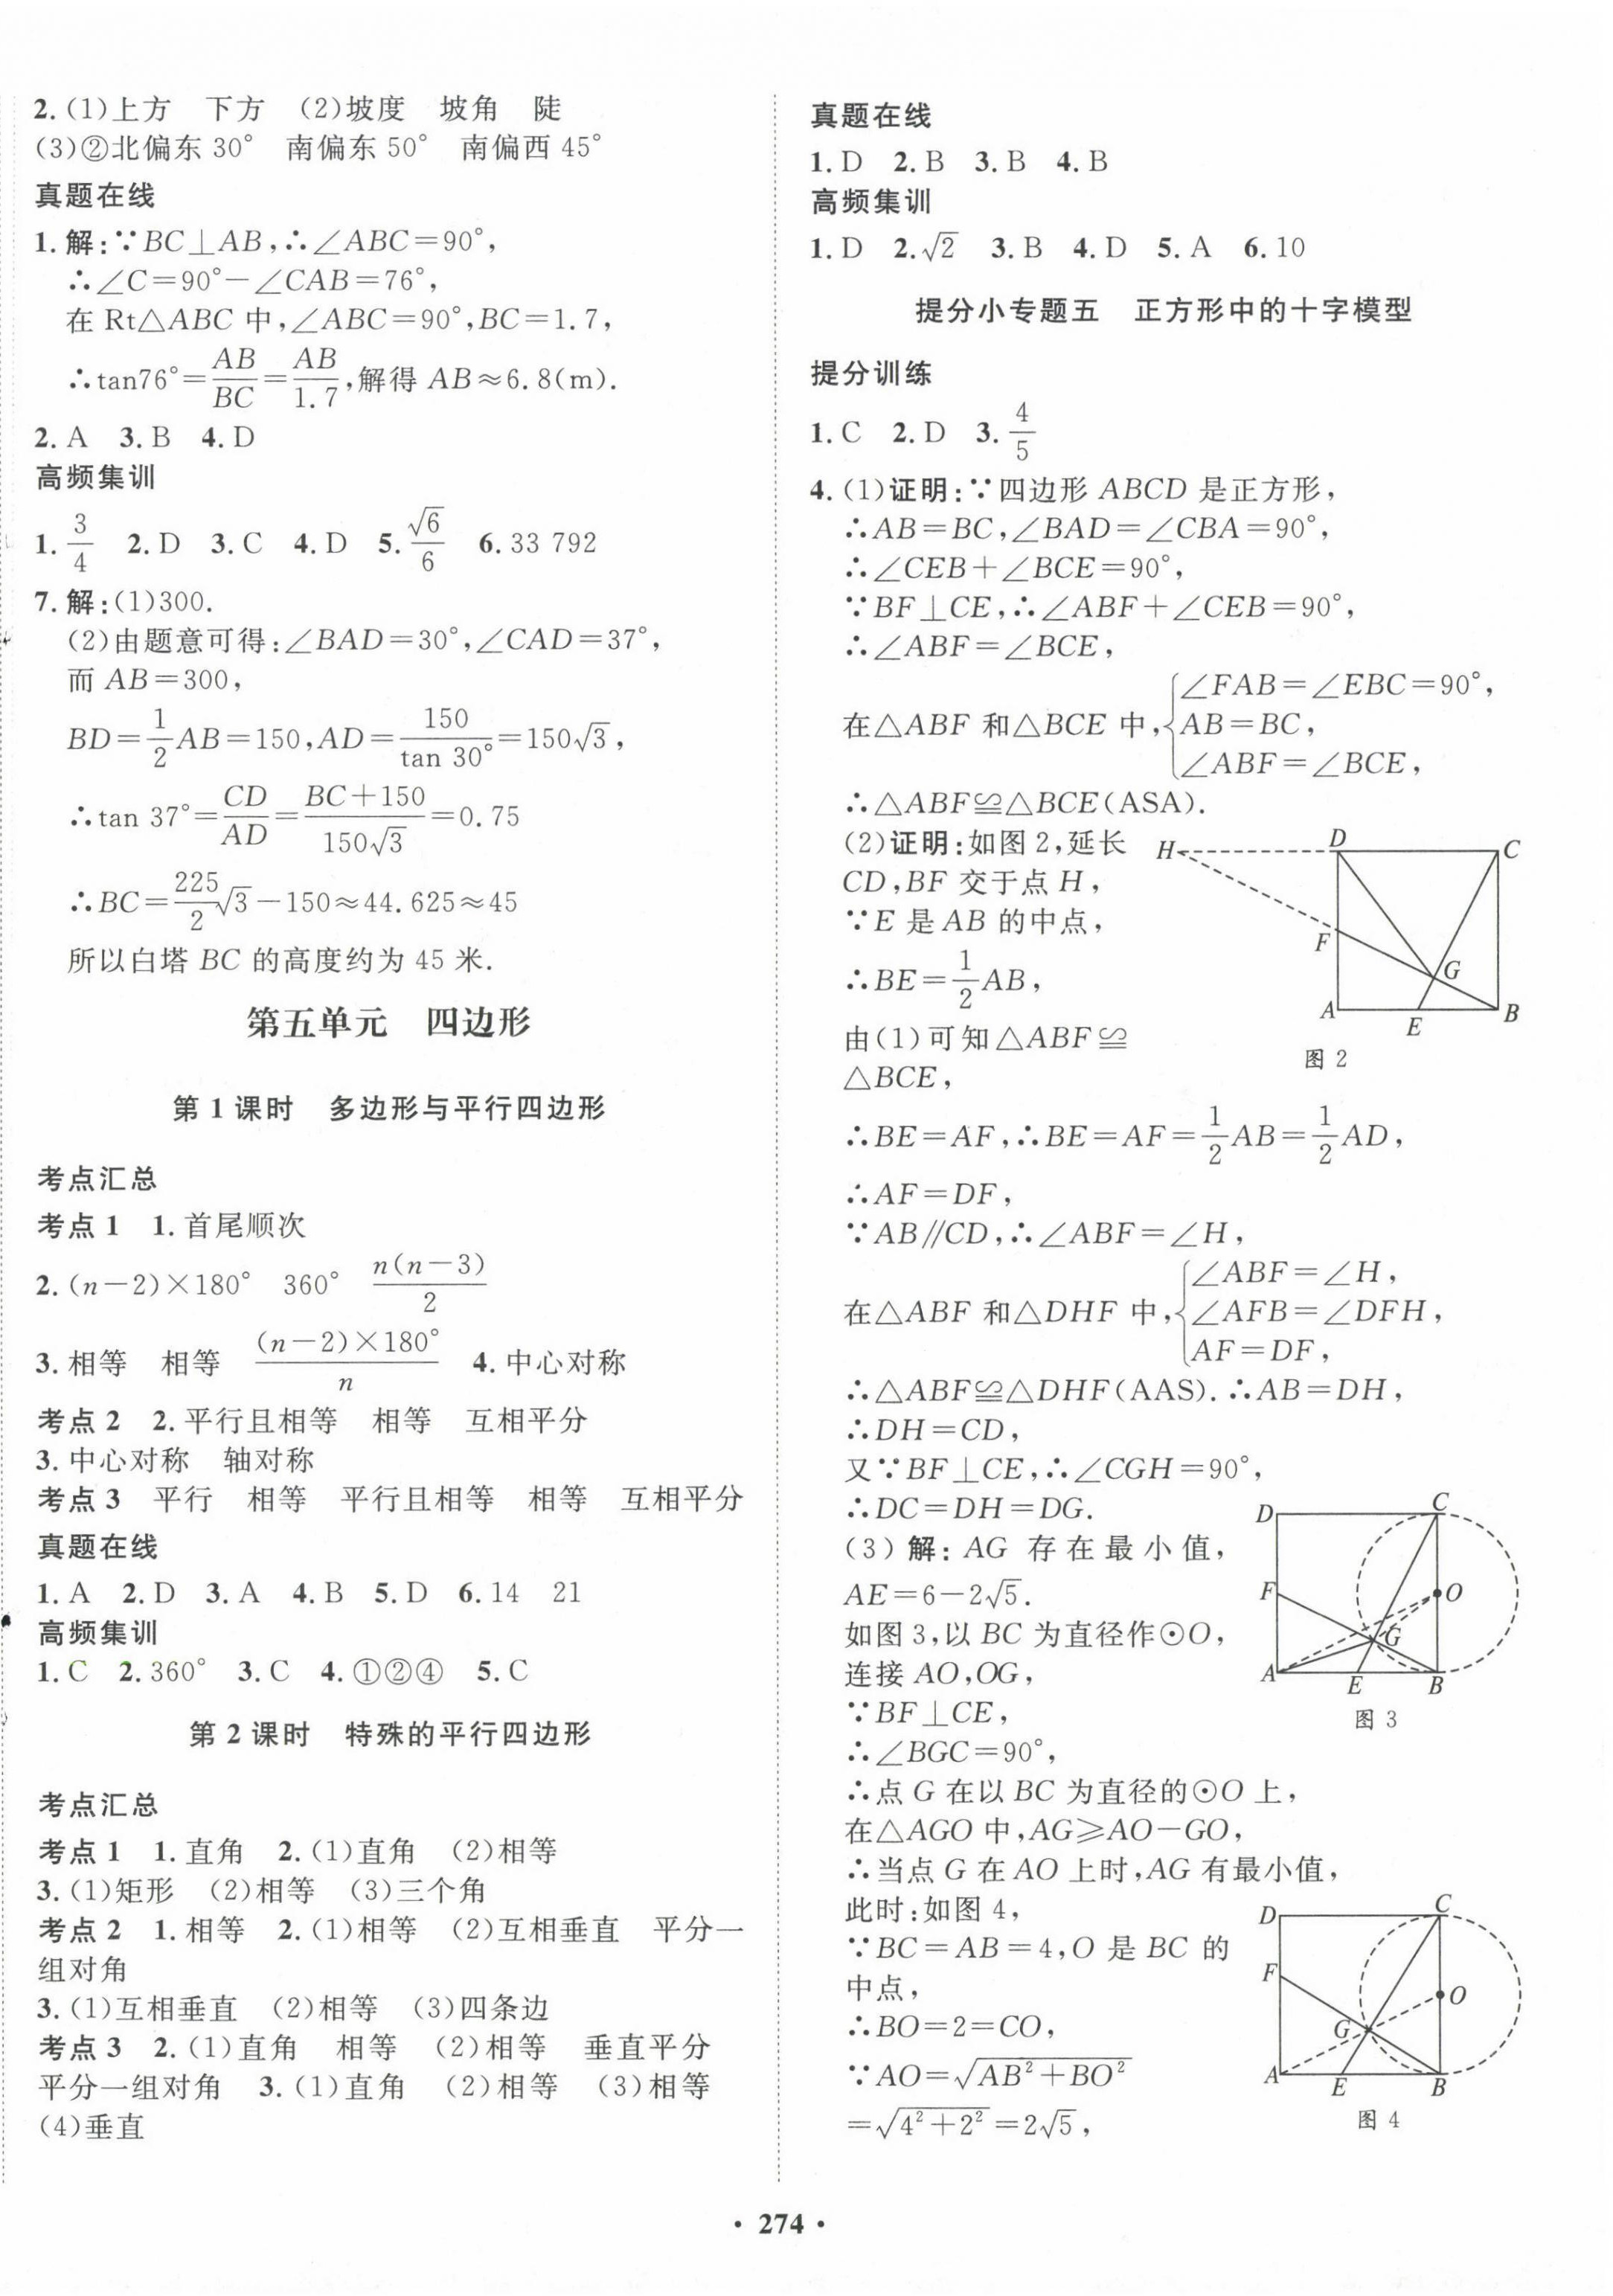 2. (1)上方　下方　(2)坡度　坡角　陡
(3)②北偏东 30°　南偏东 50°　南偏西 45°
真题在线
1. 解:∵BC⊥AB,∴∠ABC=90°,
∴∠C=90°-∠CAB=76°,
在 Rt△ABC 中,∠ABC=90°,BC=1.7,
∴tan76°=AB/BC=AB/1.7,解得 AB≈6.8(m).
2. A　3. B　4. D
高频集训
1. 3/4　2. D　3. C　4. D　5. √6/6　6. 33 792
7. 解:(1)300.
(2)由题意可得:∠BAD=30°,∠CAD=37°,
而 AB=300,
BD=1/2AB=150,AD=150/tan 30°=150√3,
∴tan 37°=CD/AD=(BC+150)/150√3=0.75
∴BC=225/2√3-150≈44.625≈45
所以白塔 BC 的高度约为 45 米.
第五单元　四边形
第 1 课时　多边形与平行四边形
考点汇总
考点 1　1. 首尾顺次
2. (n-2)×180°　360°　n(n-3)/2
3. 相等　相等　(n-2)×180°/n　4. 中心对称
考点 2　2. 平行且相等　相等　互相平分
3. 中心对称　轴对称
考点 3　平行　相等　平行且相等　相等　互相平分
真题在线
1. A　2. D　3. A　4. B　5. D　6. 14　21
高频集训
1. C　2. 360°　3. C　4. ①②④　5. C
第 2 课时　特殊的平行四边形
考点汇总
考点 1　1. 直角　2. (1)直角　(2)相等
3. (1)矩形　(2)相等　(3)三个角
考点 2　1. 相等　2. (1)相等　(2)互相垂直　平分一
组对角
3. (1)互相垂直　(2)相等　(3)四条边
考点 3　2. (1)直角　相等　(2)相等　垂直平分
平分一组对角　3. (1)直角　(2)相等　(3)相等
(4)垂直
真题在线
1. D　2. B　3. B　4. B
高频集训
1. D　2. √2　3. B　4. D　5. A　6. 10
提分小专题五　正方形中的十字模型
提分训练
1. C　2. D　3. 4/5
4. (1)证明:∵四边形 ABCD 是正方形,
∴AB=BC,∠BAD=∠CBA=90°,
∴∠CEB+∠BCE=90°,
∵BF⊥CE,∴∠ABF+∠CEB=90°,
∴∠ABF=∠BCE,
在△ABF 和△BCE 中,{∠FAB=∠EBC=90°,
AB=BC,
∠ABF=∠BCE,
∴△ABF≌△BCE(ASA).
(2)证明:如图 2,延长
CD,BF 交于点 H,
∵E 是 AB 的中点,
∴BE=1/2AB,
由(1)可知△ABF≌
△BCE,
H D C F G A E B
图 2
∴BE=AF,∴BE=AF=1/2AB=1/2AD,
∴AF=DF,
∵AB∥CD,∴∠ABF=∠H,
在△ABF 和△DHF 中,{∠ABF=∠H,
∠AFB=∠DFH,
AF=DF,
∴△ABF≌△DHF(AAS).∴AB=DH,
∴DH=CD,
又∵BF⊥CE,∴∠CGH=90°,
∴DC=DH=DG.
(3)解:AG 存在最小值,
AE=6-2√5.
如图 3,以 BC 为直径作⊙O,
连接 AO,OG,
∵BF⊥CE,
∴∠BGC=90°,
D C F O G A E B
图 3
∴点 G 在以 BC 为直径的⊙O 上,
在△AGO 中,AG≥AO-GO,
∴当点 G 在 AO 上时,AG 有最小值,
此时:如图 4,
∵BC=AB=4,O 是 BC 的
中点,
∴BO=2=CO,
∵AO=√(AB²+BO²)
=√(4²+2²)=2√5,
D C F O G A E B
图 4
· 274 ·